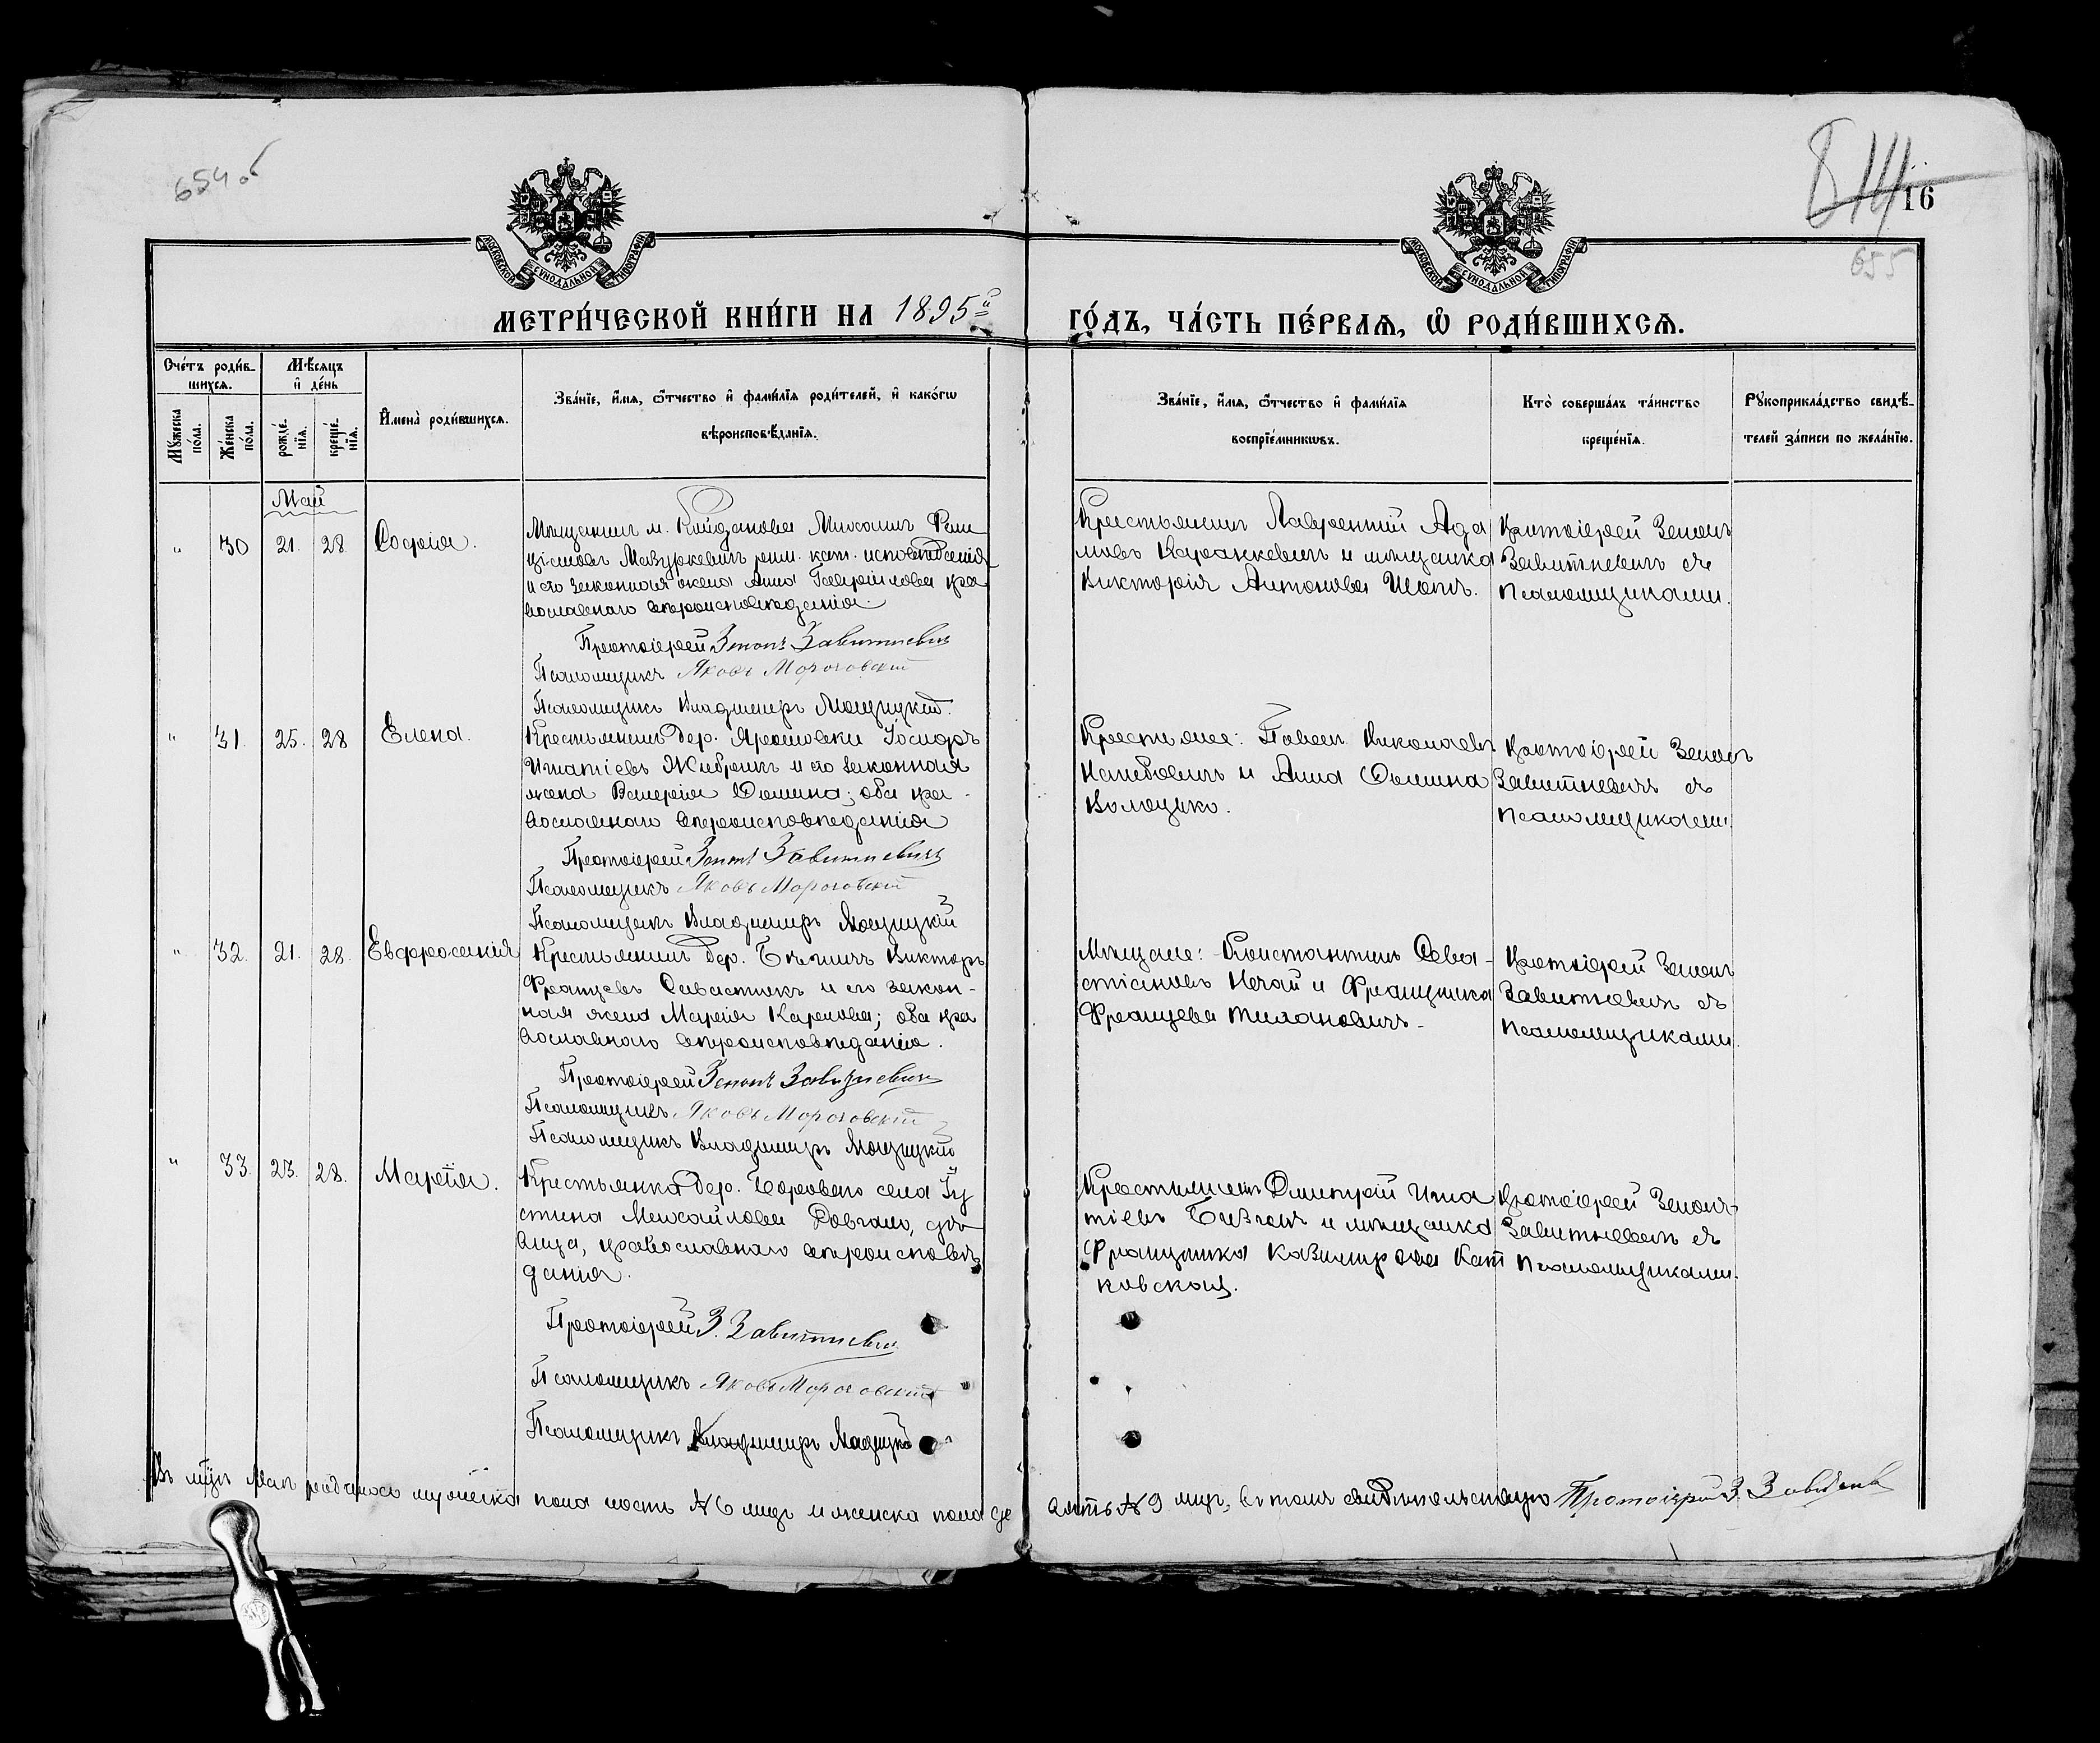 654 об
16
655
МОСКОВСКОЙ СУНОДАЛЬНОЙ ТИПОГРАФІИ
МОСКОВСКОЙ СУНОДАЛЬНОЙ ТИПОГРАФІИ
МЕТРИ́ЧЕСКОЙ КНИ́ГИ НА 1895й
ГО́ДЪ, ЧА́СТЬ ПЕ́РВАѦ, Ѡ РОДИ́ВШИХСѦ.
Сче́тъ роди́в-
шихсѧ.
Мꙋ́жеска по́ла.
Же́нска по́ла.
Мѣ́сѧцъ
и҆ де́нь
рожде́нїѧ.
креще́нїѧ.
И҆мена̀ роди́вшихсѧ.
Зва́нїе, и҆́мѧ, ѻ҆́тчество и҆ фами́лїѧ роди́телей, и҆ како́гѡ
вѣроисповѣ́данїѧ.
Зва́нїе, и҆́мѧ, ѻ҆́тчество и҆ фами́лїѧ
воспрїе́мникѡвъ.
Кто̀ соверша́лъ та́инство
креще́нїѧ.
Рꙋкоприкла́дство свидѣ́-
телей за́писи по жела́нїю.
Май
" 30 21. 28 Софія.
Мѣщанинъ м. Койданова Михаилъ Фран
цісковъ Мазуркевичъ рим. кат. исповѣданія
и его законная жена Анна Гавріилова пра
вославнаго вѣроисповѣданія.
Протоіерей Зенонъ Завитневичъ
Псаломщикъ Яковъ Мороховскій
Псаломщикъ Владиміръ Мощицкій.
Крестьянинъ Лаврентій Ада
мовъ Каранкевичъ и мѣщанка
Викторія Антонова Шотъ.
Протоіерей Зенонъ
Завитневичъ съ
псаломщиками.
" 31. 25. 28 Елена.
Крестьянинъ дер. Ярошовки Іосифъ
Игнатіевъ Жибрикъ и его законная
жена Валерія Фомина; оба пра-
вославнаго вѣроисповѣданія
Протоіерей Зенонъ Завитневичъ
Псаломщикъ Яковъ Мороховскій
Псаломщикъ Владиміръ Мощицкій
Крестьяне: Павелъ Николаевъ
и Анна Фомина
Волоцько.
Протоіерей Зенонъ
Завитневичъ съ
псаломщиками
" 32. 21. 28. Евфросинія
Крестьянинъ дер. Викторъ
Францевъ Савастюкъ и его закон-
ная жена Марія Карпова; оба пра
вославнаго вѣроисповѣданія.
Протоіерей Зенонъ Завитневичъ
Псаломщикъ Яковъ Мороховскій
Псаломщикъ Владиміръ Мощицкій
Мѣщане: Константинъ Сева-
стіановъ Нечай и Францишка
Францева Тихановичъ.
Протоіерей Зенонъ
Завитневичъ съ
псаломщиками.
" 33. 23. 28. Марія.
Крестьянка дер. Борового села Іу
стина Михайлова Довгало, дѣ
вица, православнаго вѣроисповѣ
данія.
Протоіерей З. Завитневичъ
Псаломщикъ Яковъ Мороховскій
Псаломщикъ Владиміръ Мощицкій
Крестьянинъ Дмитрій Игна
тіевъ и мѣщанка
Францишка Казимірова Кат
ковская.
Протоіерей Зенонъ
Завитневичъ съ
псаломщиками.
Въ мѣсяцѣ Маѣ родилось мужеска пола шесть №6 лицъ и женска пола де
вять №9 лицъ, въ томъ свидѣтельствую Протоіерей З. Завитневичъ